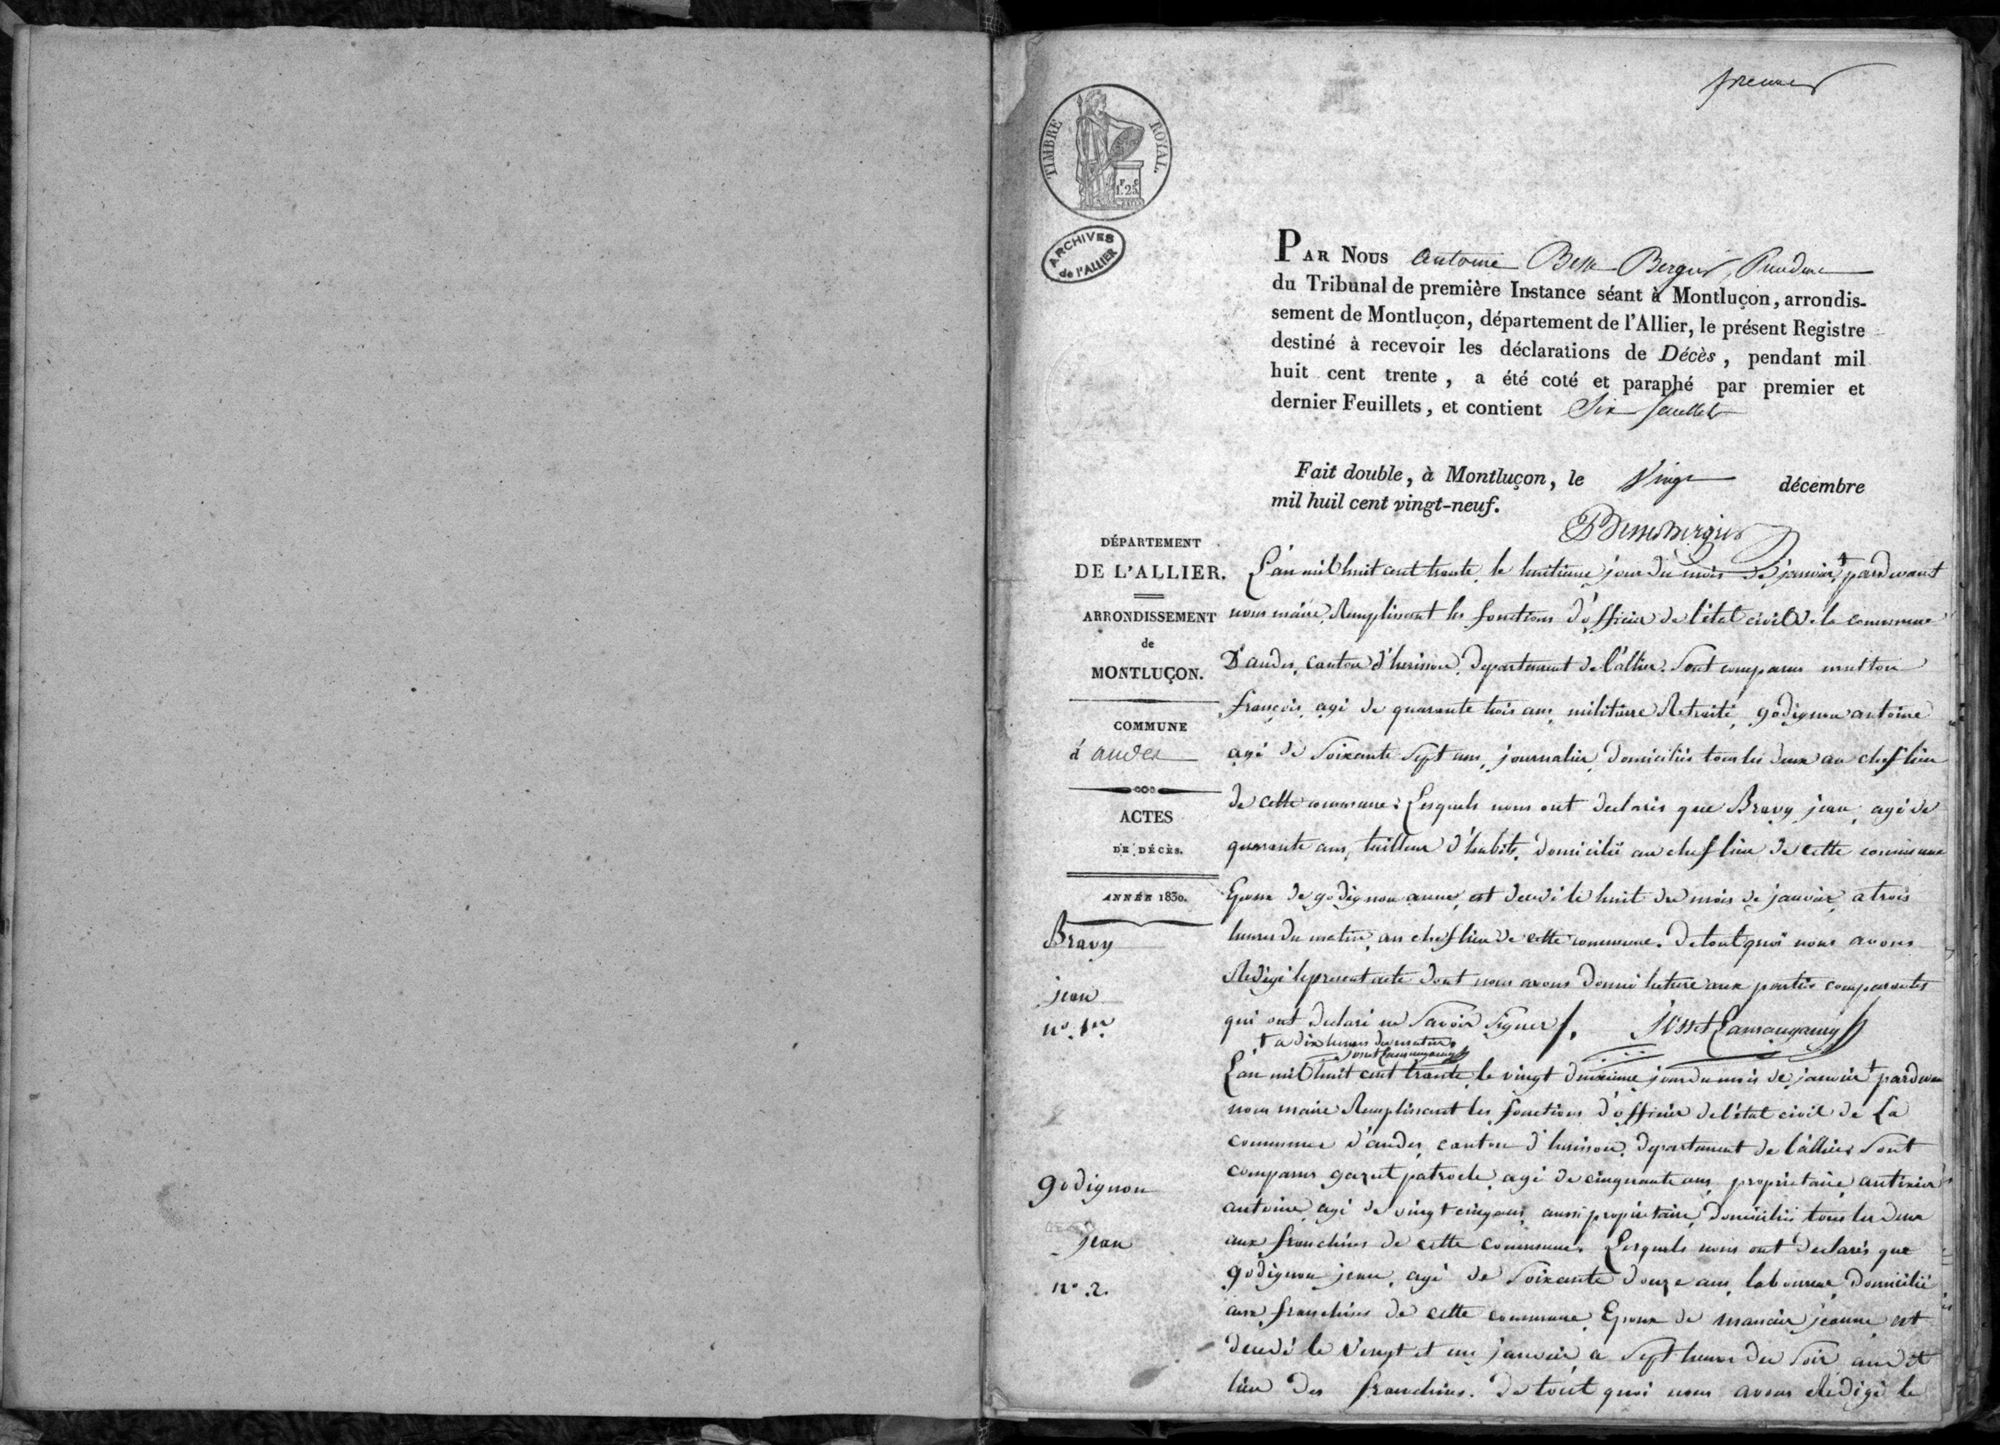 premier
TIMBRE ROYAL
1. 25
ARCHIVES
de l'ALLIER
PAR NOUS Antoine Besse Bergier, President
du Tribunal de première Instance séant à Montluçon, arrondis-
sement de Montluçon, département de l'Allier, le présent Registre
destiné à recevoir les déclarations de Décès, pendant mil
huit cent trente, a été coté et paraphé par premier et
dernier Feuillets, et contient Six feuillets
Fait double, à Montluçon, le Vingt décembre
mil huil cent vingt-neuf.
BesseBergier
DÉPARTEMENT
DE L'ALLIER.
ARRONDISSEMENT
de
MONTLUÇON.
COMMUNE
d'audes
ACTES
DE DÉCÈS.
ANNÉE 1830.
Bravy
jean
n°. 1er
L'an mil huit cent trente, le huitieme jour du mois de janvier † pardevant
nous maire, Remplissant les fonctions d'officier de l'état civil de la commune
D'audes, canton d'herisson, departement de l'allier. Sont comparus
françois, agé de quarante trois ans, militaire Retraité, godignon antoine
agé de Soixante Sept ans, journalier, domiciliés tous les deux au chef lieu
de cette commune; Lesquels nous ont declarés que Bravy jean, agé de
quarante ans, tailleur d'habits, domicilié au chef lieu de cette commune
Epoux de godignon anne, est decedé le huit du mois de janvier, a trois
heures du matin, au chef lieu de cette commune. De tout quoi nous avons
Redigé le present acte dont nous avons donné lecture aux parties comparantes
qui ont declaré ne Savoir Signer.
† a dix heures du matin.
godignon
jean
n°. 2.
L'an mil huit cent trante, le vingt deuxieme jour du mois de janvier † pardevan
nous maire Remplissant les fonctions d'officier de l'état civil de La
commune d'audes, canton d'herisson, departement de l'allier Sont
comparus gazet patrocle, agé de cinquante ans, proprietaire,
antoine, agé de vingt cinq ans, aussi proprietaire, Domiciliés tous les deux
aux franchises de cette commune. Lesquels nous ont declarés que
godignon jean, agé de Soixante douze ans, laboureur, Domicilié
aux franchises de cette commune, Epoux de jeanne est
decedé le Vingt et un janvier, a Sept heures du Soir audit
lieu des franchises. De tout quoi nous avons Redigé le